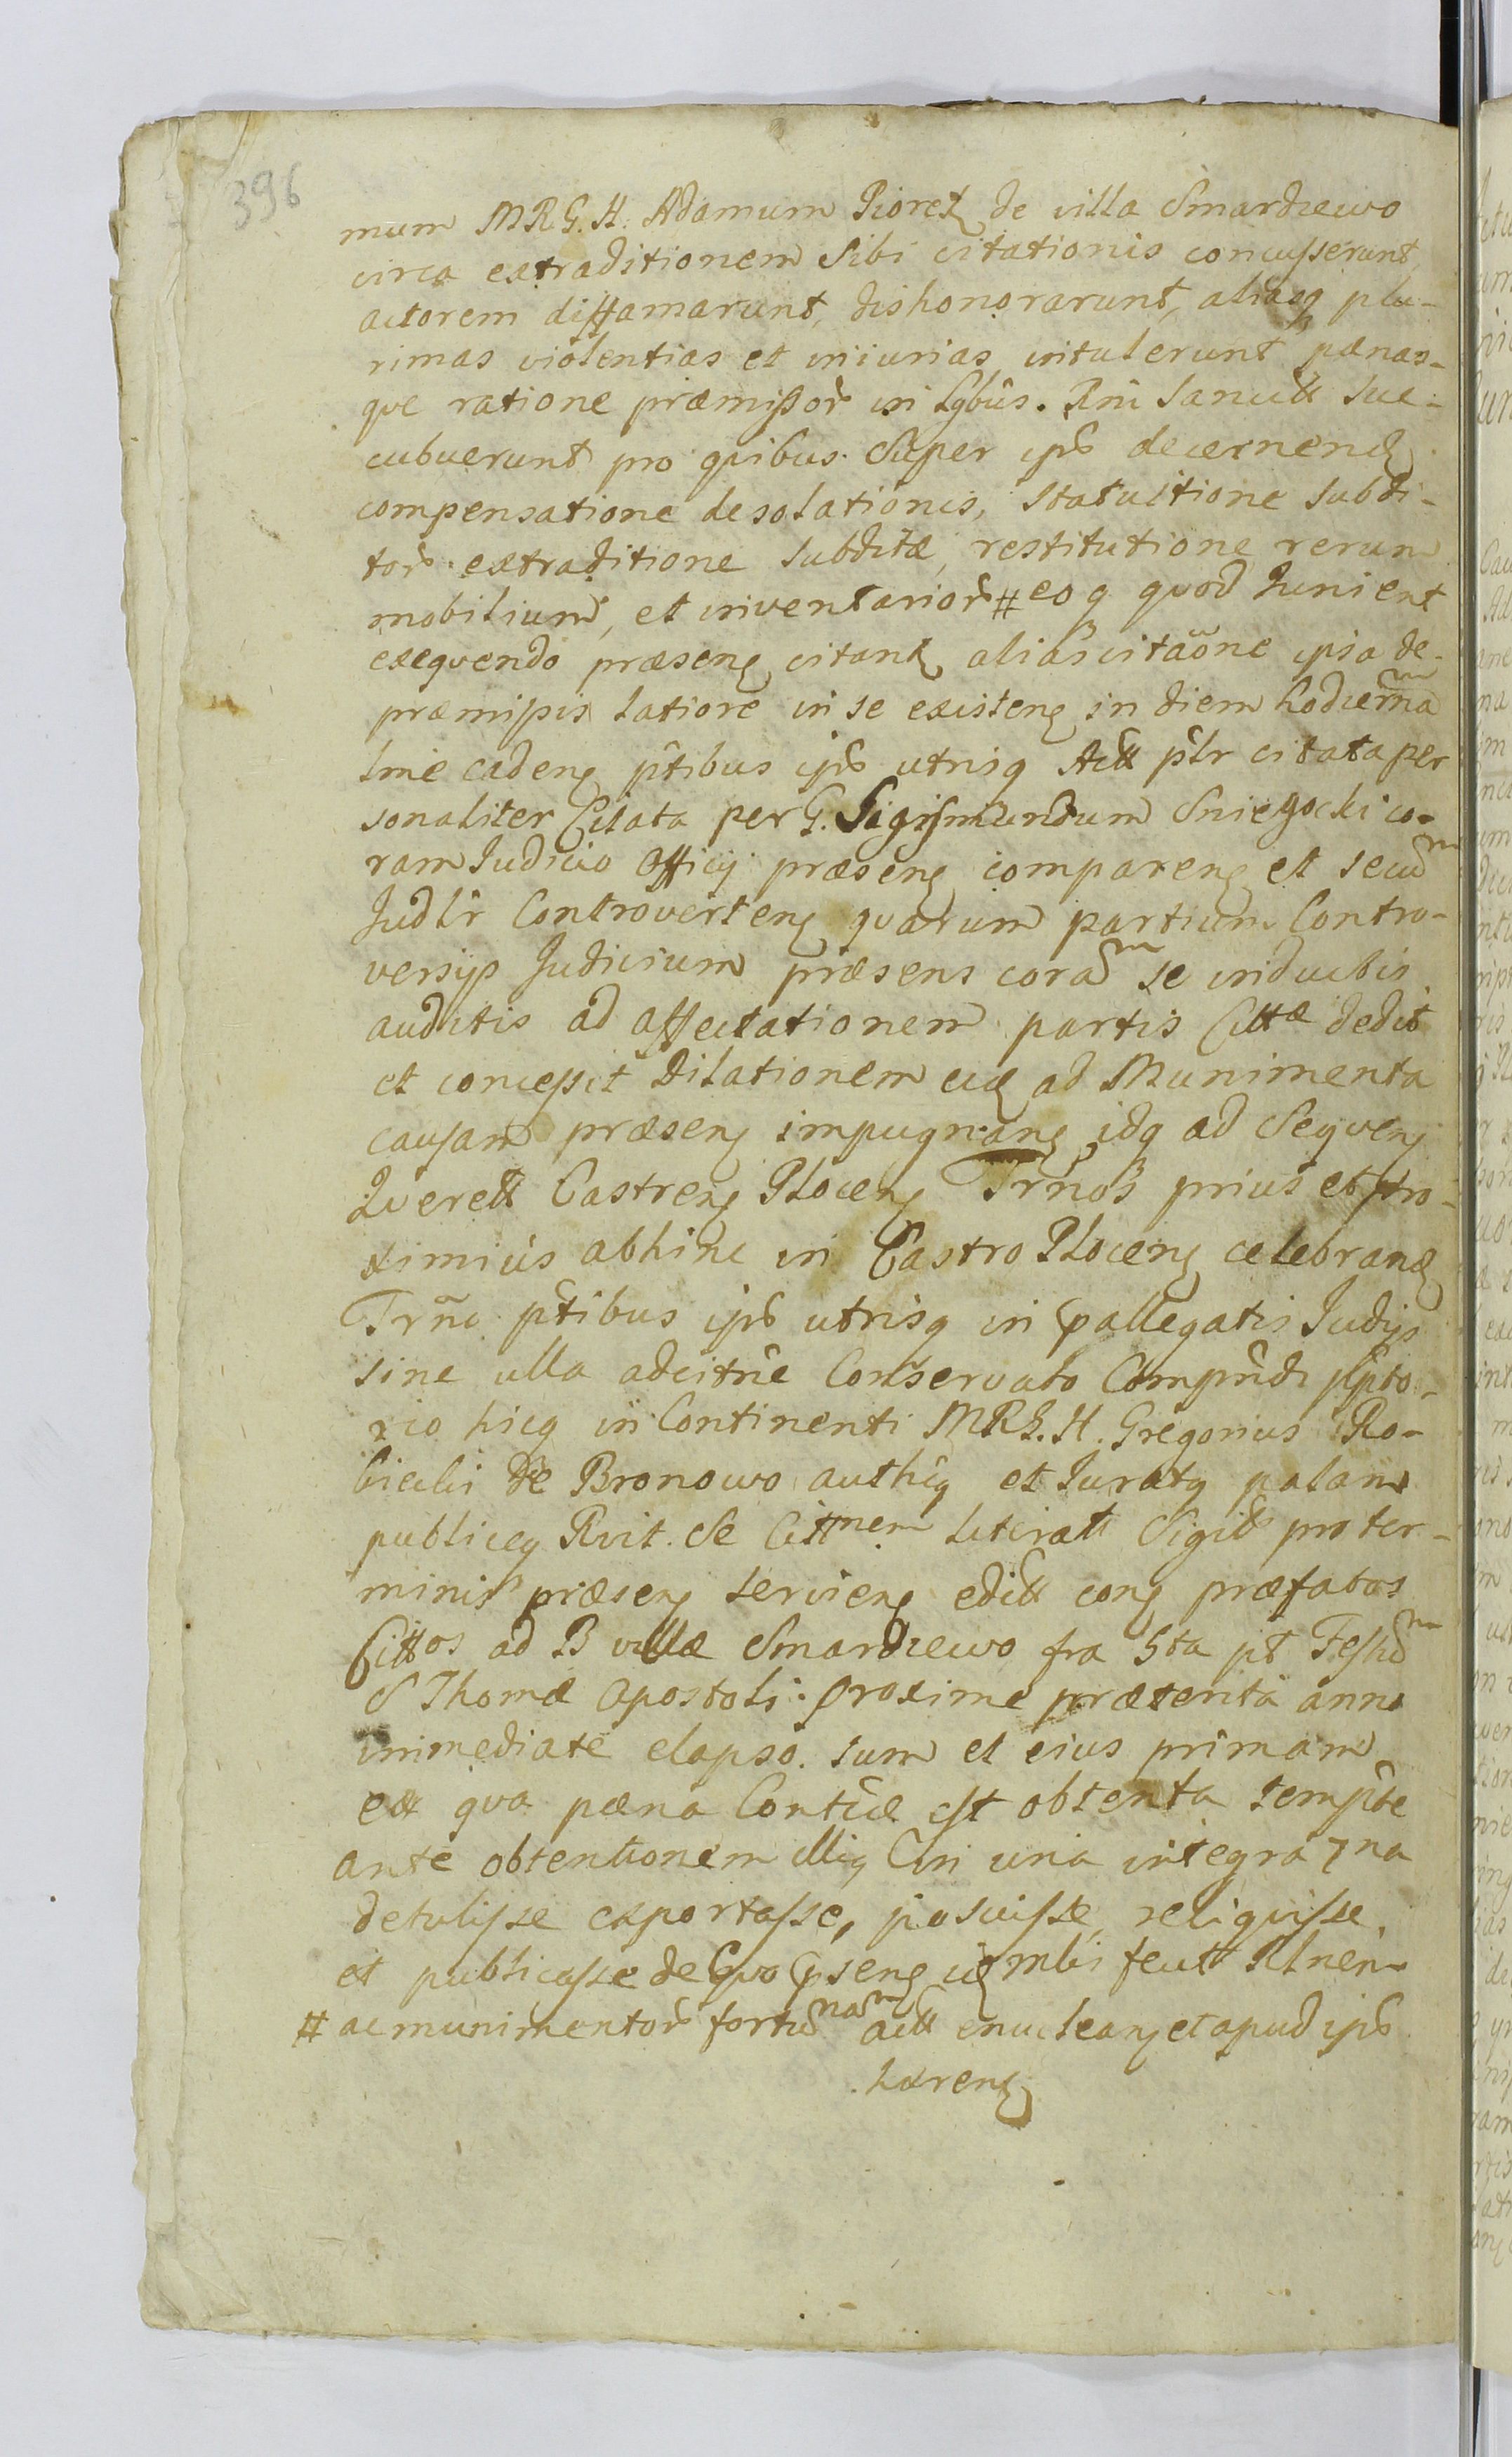 396
mum MRG. H. Adamum Pioret de villa Smardzewo
circa extraditionem Sibi citationis concusserunt,
actorem diffamarunt, dishonorarunt, aliasq plu-
rimas violentias et iniurias intulerunt pœnas-
que ratione præmissor in Lgbus. Rni Sancitt suc-
cubuerunt pro quibus Super ijs decernend
compensatione desolationis, Statuitione Subdi-
tor extraditione Subditæ, restitutione rerum
mobilium, et inventarior # eoq quod Iuni ent
exequendo præsen citan alias citaone ipsa de
præmissis latiore in se existen in diem hodierna
lmie caden ptibus ijs utrisq Actt plr citata per
sonaliter Citata per G. Sigismundum Sniegocki co-
ram Iudicio Officij præsen comparen et secum
Judlr Controverten quarum partium Contro-
versijs Judicium præsens coram se inductis
auditis ad affectationem partis Cittæ dedit
et concessit Dilationem eid ad Munimenta
causam præsen impugnan idq ad Sequen
Querell Castren Plocen Trnos prius et pro-
ximius abhinc in Castro Plocen celebrand
Trno ptibus ijs utrisq in pallegatis Judijs
sine ulla adcitne Conservato Compndi ppto-
rio hicq in Continenti MRG. H. Gregorius Ro-
bieki de Bronowo authq et Iuratq palam
publiceq Rvit. Se Cittnem literatt Sigill pro ter-
minis præsen servien edictt con præfatos
Cittos ad B villæ Smardzewo fra 5ta pt Festum
S Thomæ Apostoli proxime præterita anno
immediate elapso. sum et eius primam
ex qua pœna Contciæ est obtenta tempste
ante obtentionem illiq in una integra 7na
detulisse exportasse, posuisse, reliquisse,
et publicasse de quo psen mli fectt Rlnen
# ac munimentor fortunam actt enuclean et apud ijs
hæren